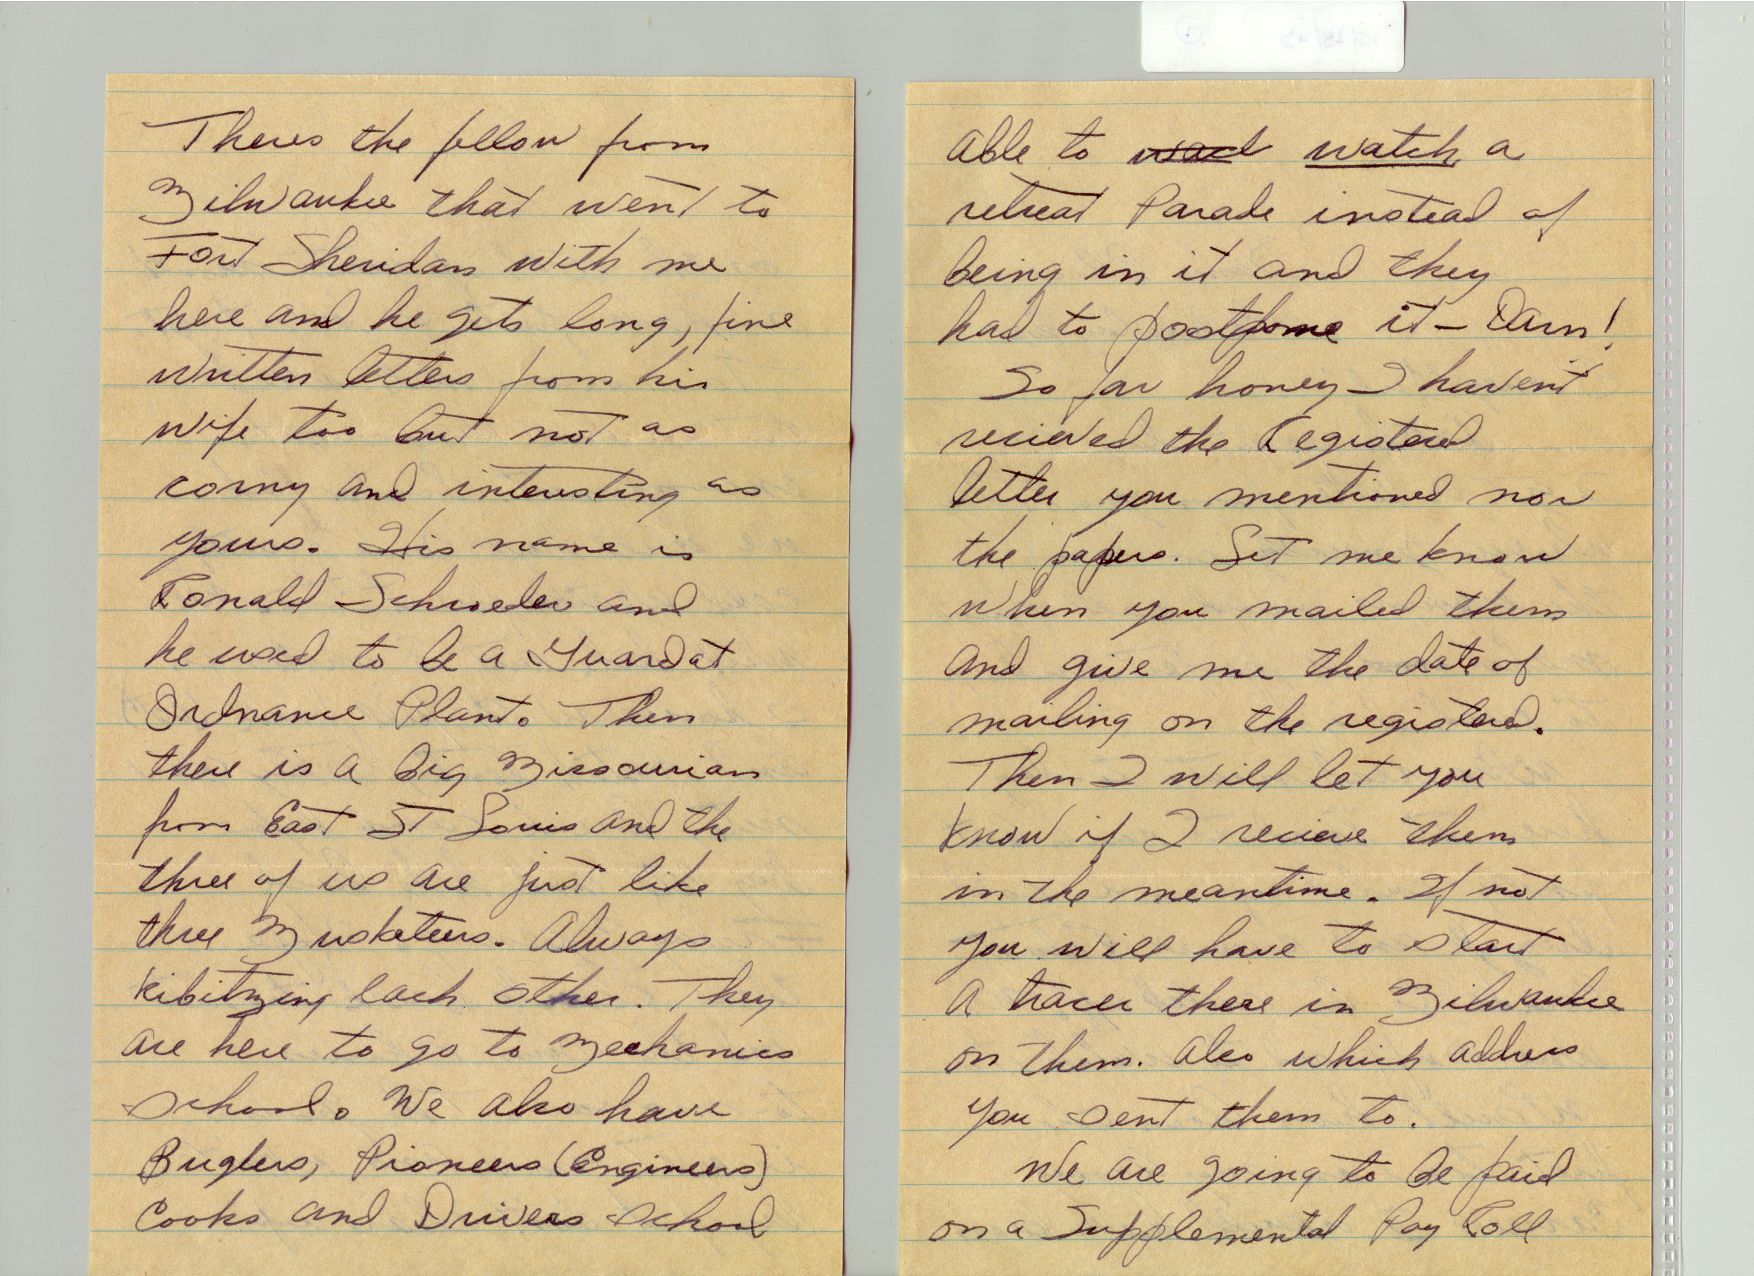 Theres the fellow from
Milwaukee that went to
Fort Sheridan with me
here and he gets long, fine
written letters from his
wife too but not as
corny and interesting as
yours. His name is
Ronald Schroeder and
he used to be a Guard at
Ordnance Plant. Then
there is a big Missourian
from East St Louis and the
three of us are just like
three Musketeers. Always
kibitzing each other. They
are here to go to Mechanics
school. We also have
Buglers, Pioneers (Engineers)
Cooks and Drivers school
able to watch a
retreat Parade instead of
being in it and they
had to postpone it – Darn!
So far honey I haven't
recieved the Registered
letter you mentioned nor
the papers. Let me know
when you mailed them
and give me the date of
mailing on the registered.
Then I will let you
know if I recieve them
in the meantime. If not
you will have to start
a tracer there in Milwaukee
on them. Also which address
you sent them to.
We are going to be paid
on a Supplemental Pay Roll